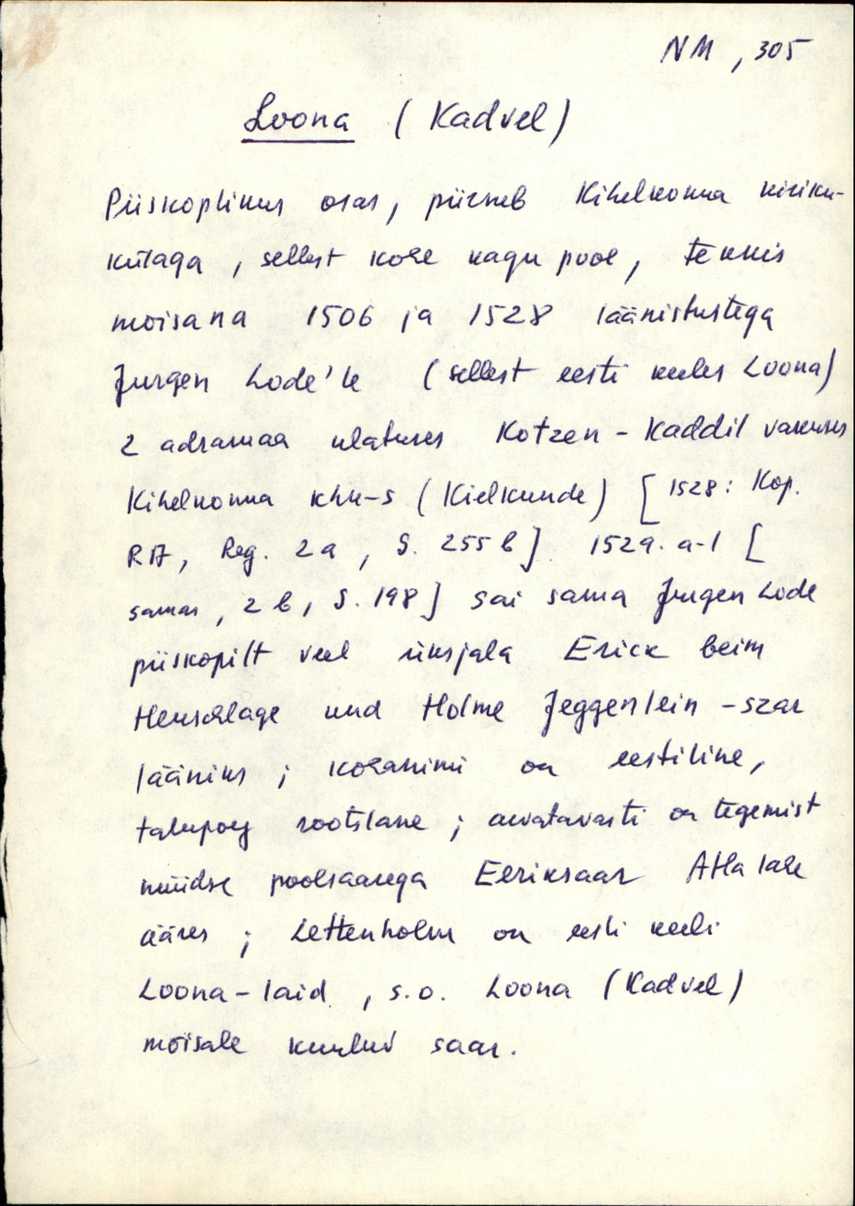 NM, 305
Loona (Kadvel)
Piiskoplikus osas, piirneb Kihelkonna kiriku-
külaga, sellest kohe kagu pool, tekkis
moisana 1506 ja 1528 läänistustega
Jurgen Lode'le (sellest eesti keeles Loona)
2 adramaa ulatuses Kotzen-Kaddil vakuses
Kihelkonna khk-s (Kielkunde) [1528: Kop.
RA, Reg. 2a, S. 255 b]. 1529. a-l [
samas, 2 b, S. 198] sai sama Jurgen Lode
piiskopilt veel üksjala Erick beim
Heuschlage und Holme Jeggenlein-szar
lääniks; kohanimi on eestiline,
talupoeg rootslane; arvatavasti on tegemist
nüüdse poolsaarega Eeriksaar Atla lahe
ääres; Lettenholm on eesti keeli
Loona-laid, s.o. Loona (Kadvel)
mõisale kuuluv saar.